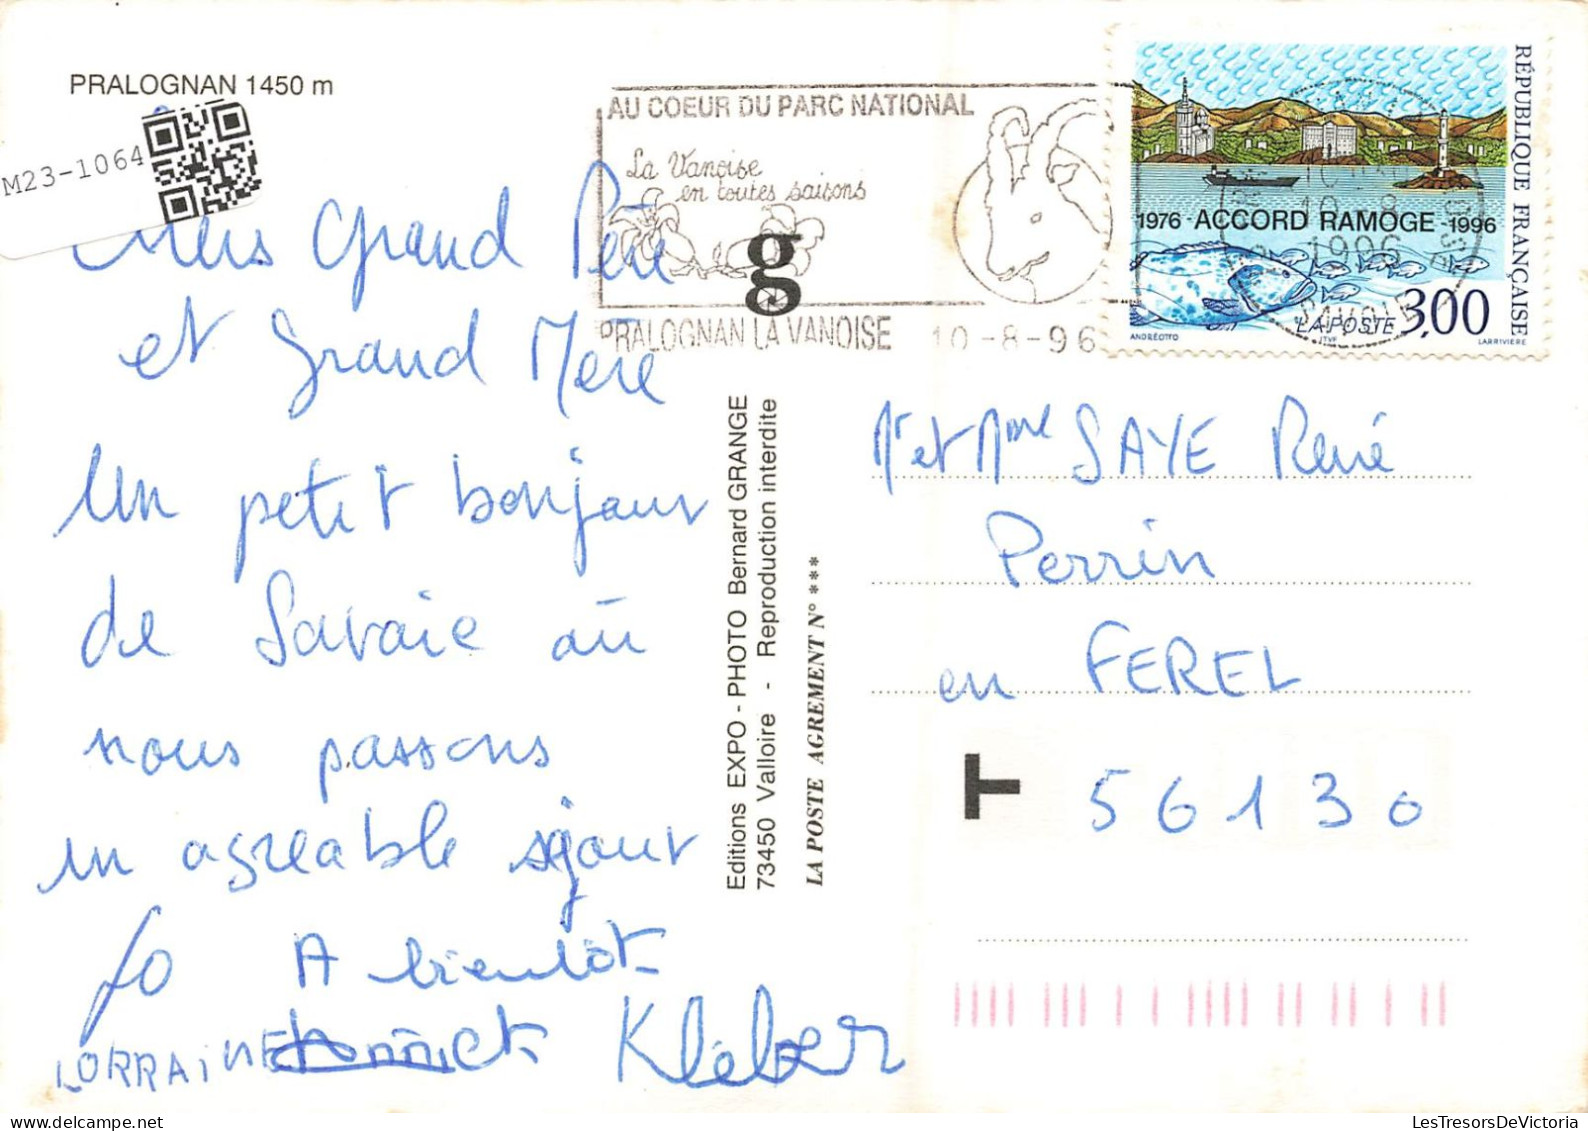 PRALOGNAN 1450 m
M23-1064
AU COEUR DU PARC NATIONAL
La Vanoise
en toutes saisons
g
PRALOGNAN LA VANOISE 10-8-96
RÉPUBLIQUE FRANÇAISE
1976 - ACCORD RAMOGE - 1996
1996
SAVOIE
LA POSTE 3,00
ANDRÉOTTO ITVF LARRIVIERE
Grand Père
et Grand Mere
Un petit bonjour
de Savoie où
nous passons
un agreable séjour
Jo A bientôt
LORRAINE Annick Kléber
Editions EXPO - PHOTO Bernard GRANGE
73450 Valloire - Reproduction interdite
LA POSTE AGREMENT N° ***
Mr et Mme SAYE René
Perrin
en FEREL
T 56130
LesTresorsDeVictoria.com